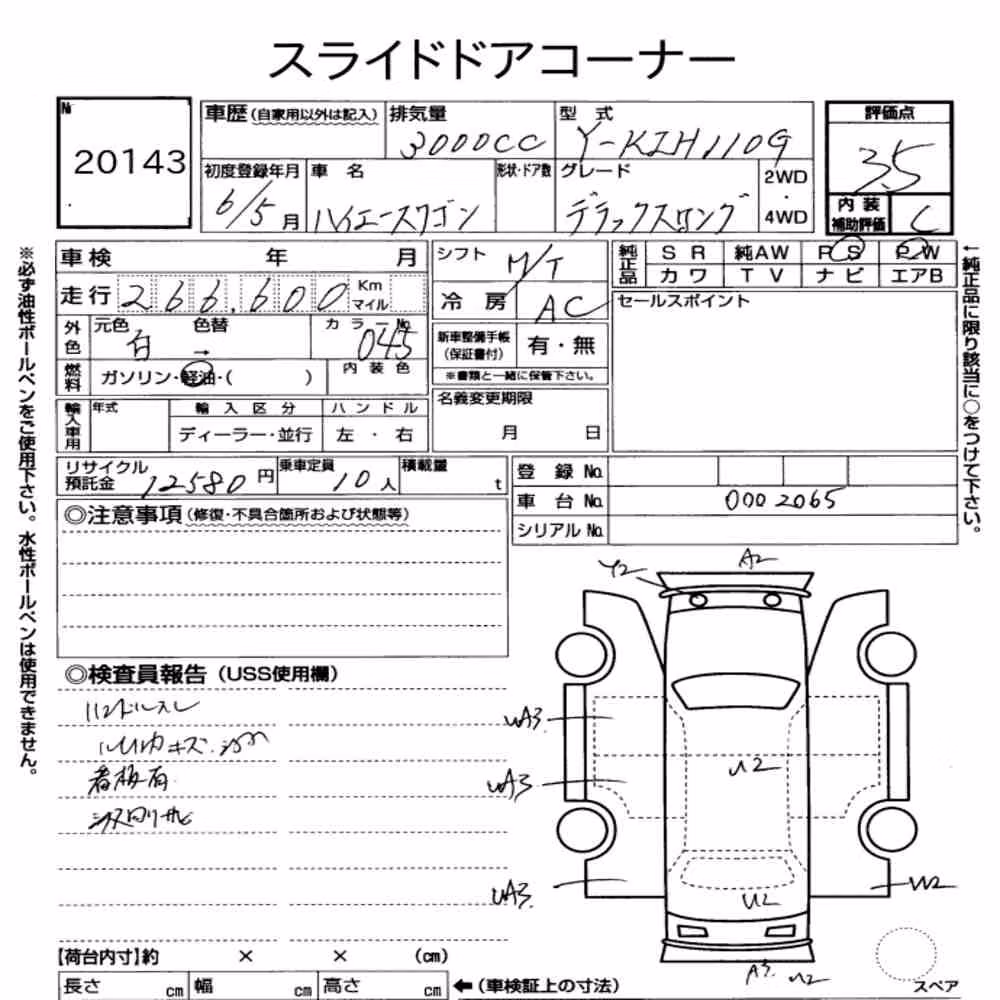 スライドドアコーナー
№
20143
車歴(自家用以外は記入)
排気量
3000CC
型 式
Y-KZH110G
評価点
3.5
初度登録年月
6/5月
車 名
ハイエースワゴン
形状・ドア数
グレード
デラックスロング
2WD
・
4WD
内 装
補助評価
C
車検 年 月
シフト M/T
純正品
S R 純AW P S P W
カワ T V ナビ エアB
走行 266,600 Km マイル
冷 房 AC
セールスポイント
外色
元色 白 色替 →
カラーNo. 045
新車整備手帳
(保証書付)
有・無
※書類と一緒に保管下さい。
燃料
ガソリン・軽油・( )
内 装 色
名義変更期限
月 日
輸入車用
年式
輸 入 区 分
ハ ン ド ル
ディーラー・並行
左 ・ 右
リサイクル
預託金 12580 円
乗車定員 10人
積載量 t
登 録 No.
車 台 No. 0002065
シリアル No.
◎注意事項(修復・不具合箇所および状態等)
◎検査員報告(USS使用欄)
ハンドルスレ
看板有
Y2
A2
UA3
UA3
UA3
U2
U2
W2
A3
U2
スペア
【荷台内寸】約 × × (cm)
長さ cm 幅 cm 高さ cm
←(車検証上の寸法)
※必ず油性ボールペンをご使用下さい。水性ボールペンは使用できません。
←純正品に限り該当に○をつけて下さい。